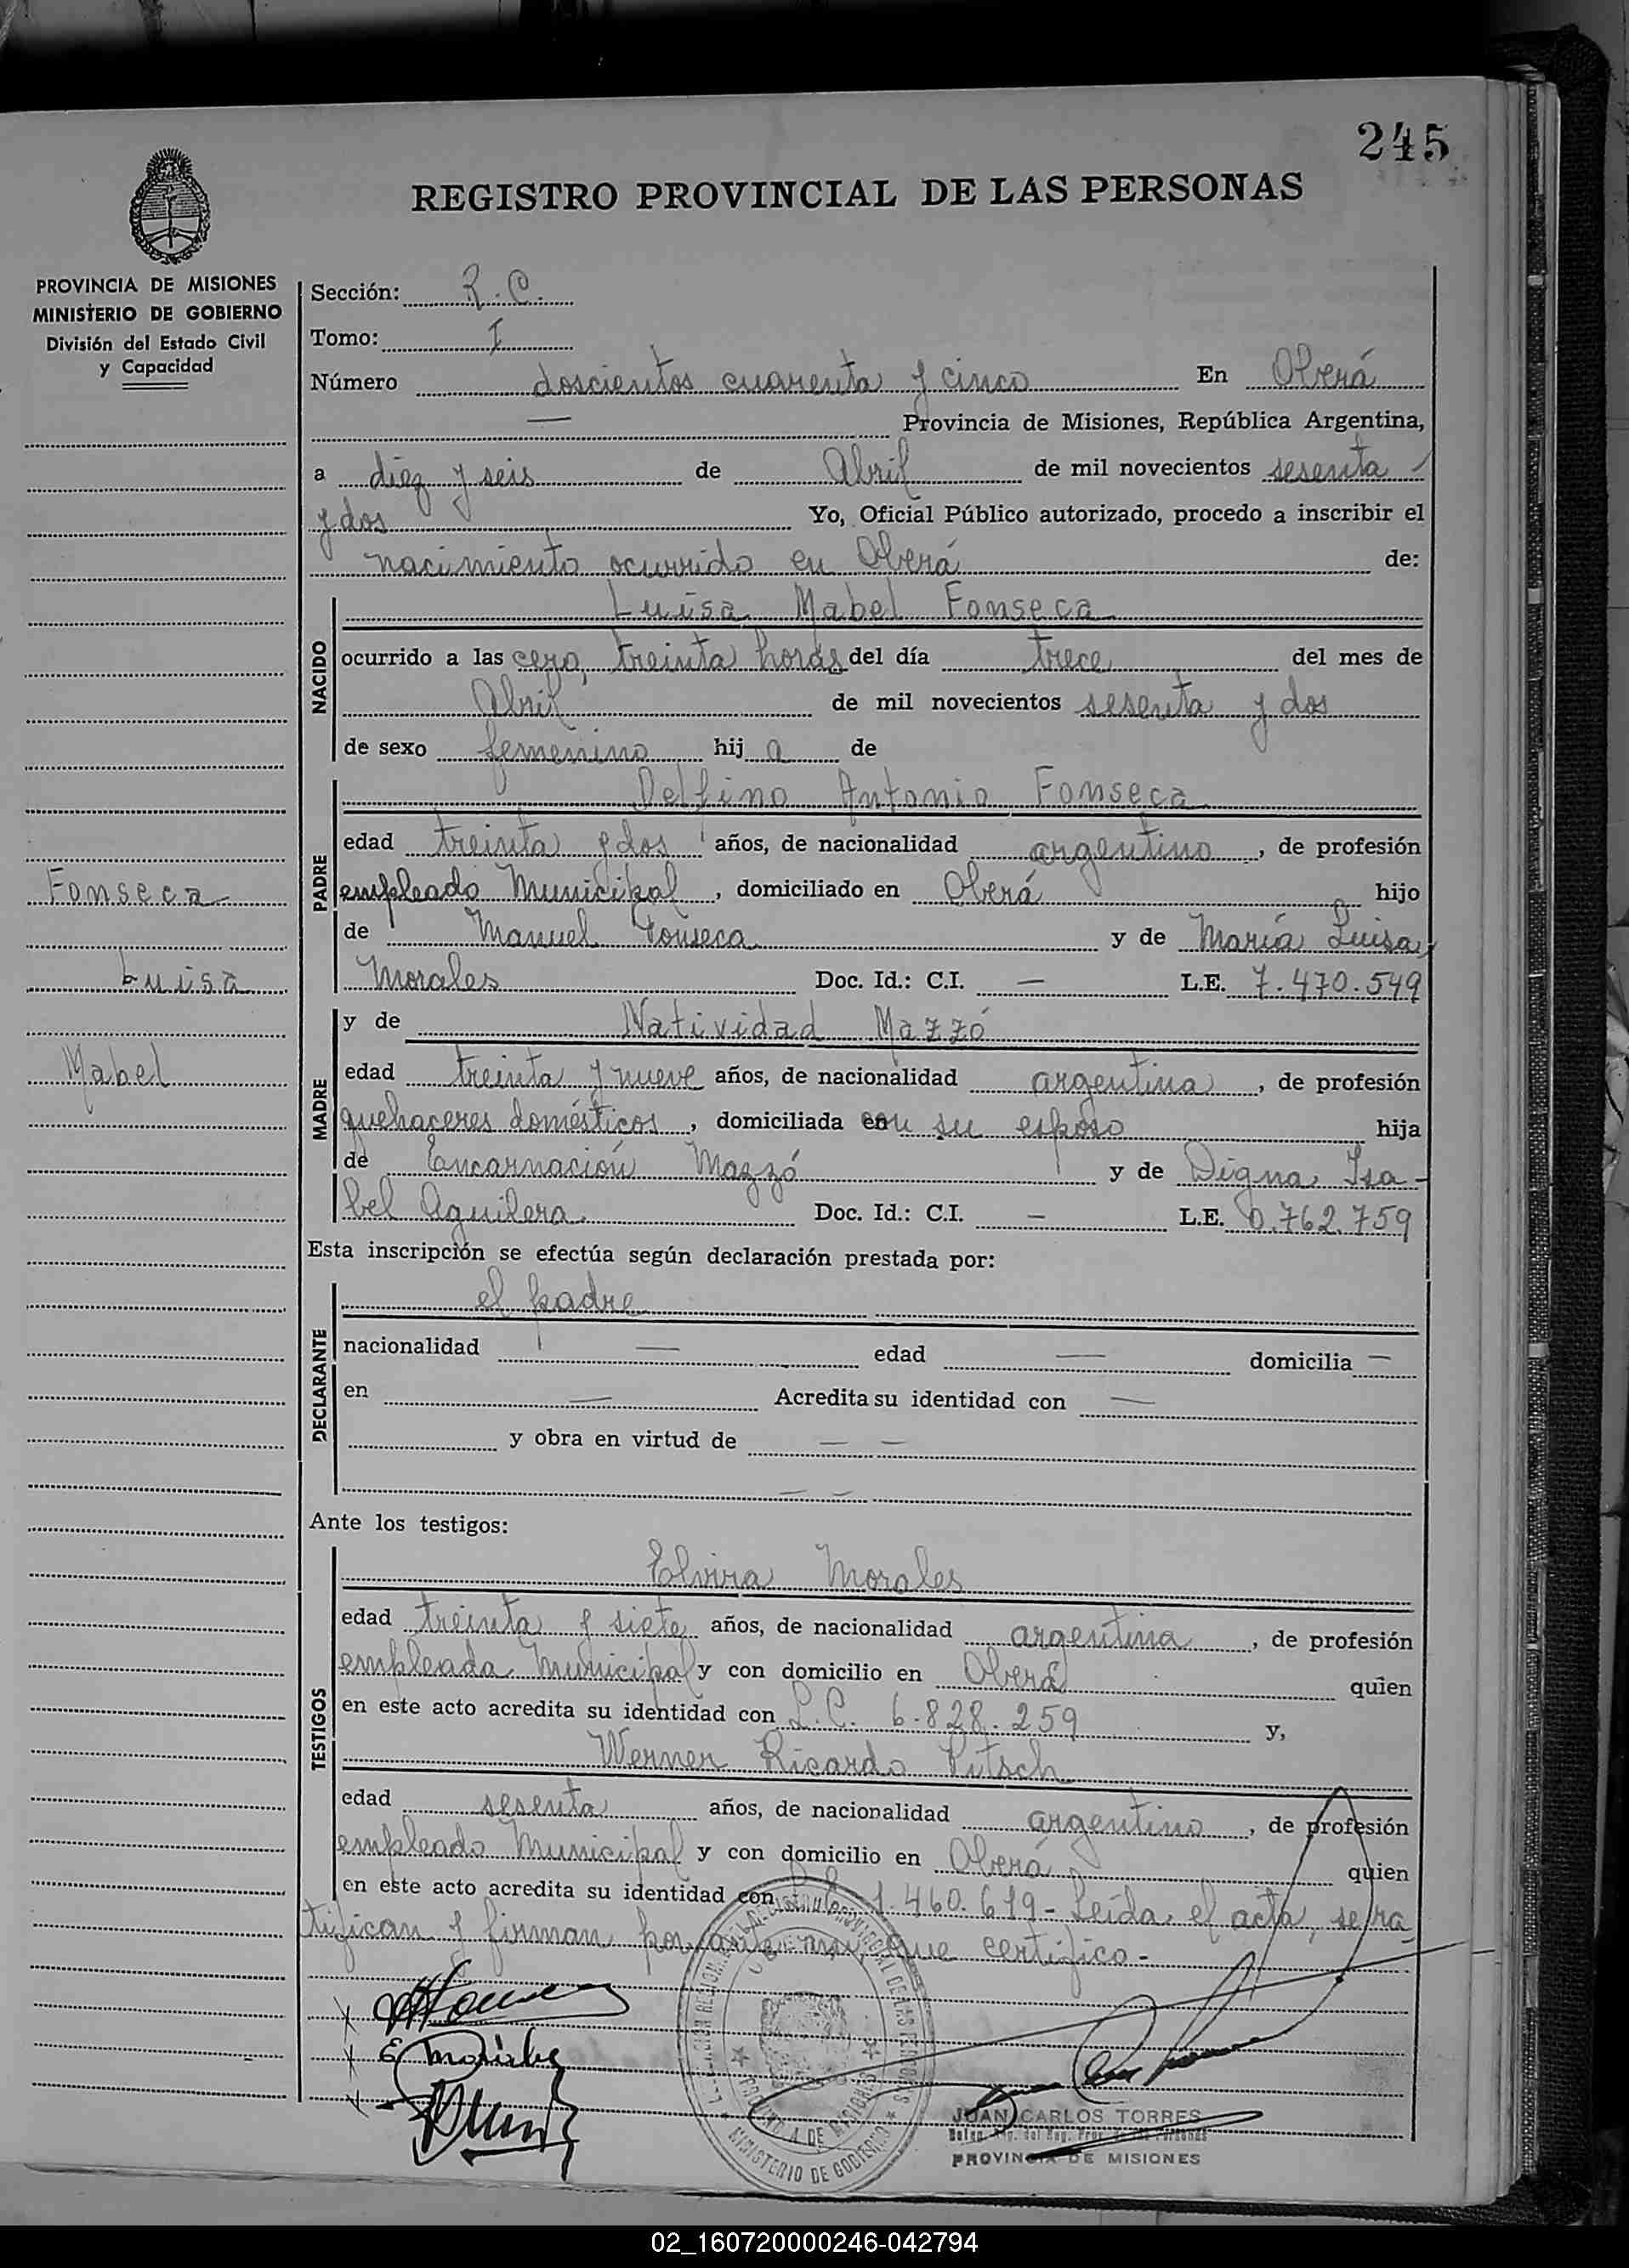 245
REGISTRO PROVINCIAL DE LAS PERSONAS
PROVINCIA DE MISIONES
MINISTERIO DE GOBIERNO
División del Estado Civil
y Capacidad
Fonseca
Luisa
Mabel
Sección: R.C.
Tomo: I
Número doscientos cuarenta y cinco En Oberá
— Provincia de Misiones, República Argentina,
a diez y seis de Abril de mil novecientos sesenta
y dos Yo, Oficial Público autorizado, procedo a inscribir el
nacimiento ocurrido en Oberá de:
NACIDO
Luisa Mabel Fonseca
ocurrido a las cero, treinta horas del día trece del mes de
Abril de mil novecientos sesenta y dos
de sexo femenino hija de
PADRE
Delfino Antonio Fonseca
edad treinta y dos años, de nacionalidad argentino, de profesión
empleado Municipal, domiciliado en Oberá hijo
de Manuel Fonseca y de María Luisa
Morales Doc. Id.: C.I. — L.E. 7.470.549
MADRE
y de Natividad Mazzó
edad treinta y nueve años, de nacionalidad argentina, de profesión
quehaceres domésticos, domiciliada con su esposo hija
de Encarnación Mazzó y de Digna Isa-
bel Aguilera Doc. Id.: C.I. — L.E. 0.762.759
Esta inscripción se efectúa según declaración prestada por:
DECLARANTE
el padre
nacionalidad — edad — domicilia —
en — Acredita su identidad con —
y obra en virtud de — —
— —
Ante los testigos:
TESTIGOS
Elvira Morales
edad treinta y siete años, de nacionalidad argentina, de profesión
empleada Municipal y con domicilio en Oberá quien
en este acto acredita su identidad con L.C. 6.828.259 y,
Werner Ricardo Putsch
edad sesenta años, de nacionalidad argentino, de profesión
empleado Municipal y con domicilio en Oberá quien
en este acto acredita su identidad con 1.460.619- Leída el acta, se ra-
tifican y firman por ante mí, que certifico-
E Morales
MINISTERIO DE GOBIERNO
JUAN CARLOS TORRES
PROVINCIA DE MISIONES
02_160720000246-042794